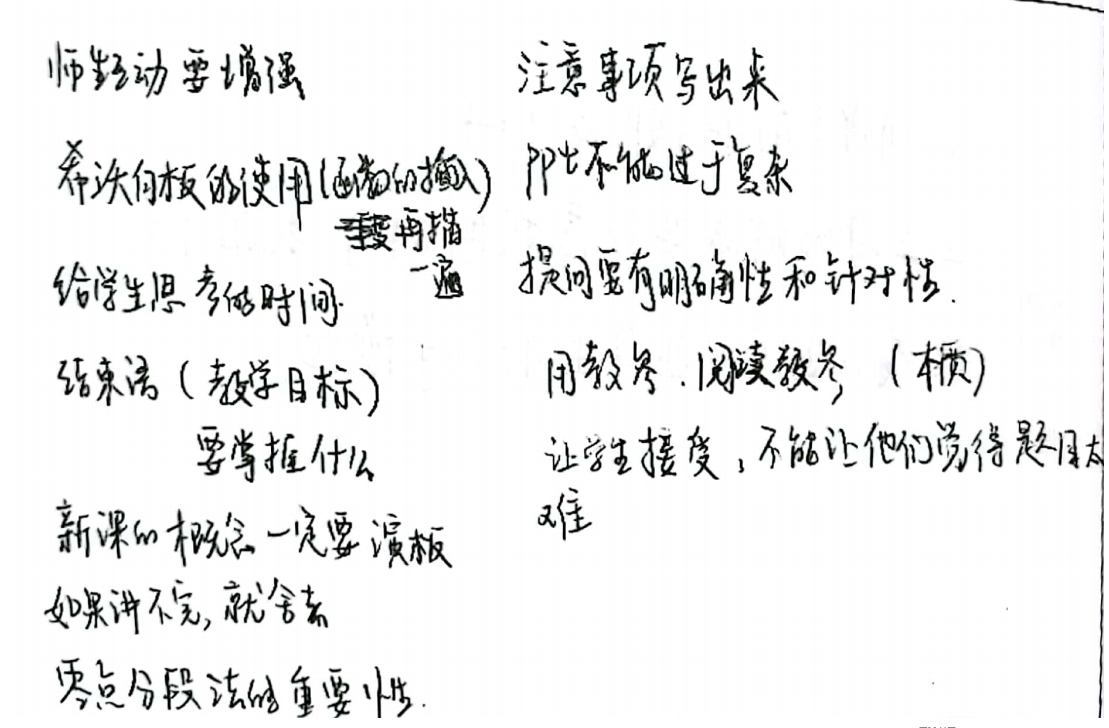 师生互动要增强
希沃白板的使用(函数的插入)
再描
一遍
给学生思考的时间.
结束语(教学目标)
要掌握什么
新课的概念一定要演板
如果讲不完,就舍去
零点分段法的重要性.
注意事项写出来
PPt不能过于复杂
提问要有明确性和针对性.
用教参.阅读教参()
让学生接受,不能让他们觉得题目太
难